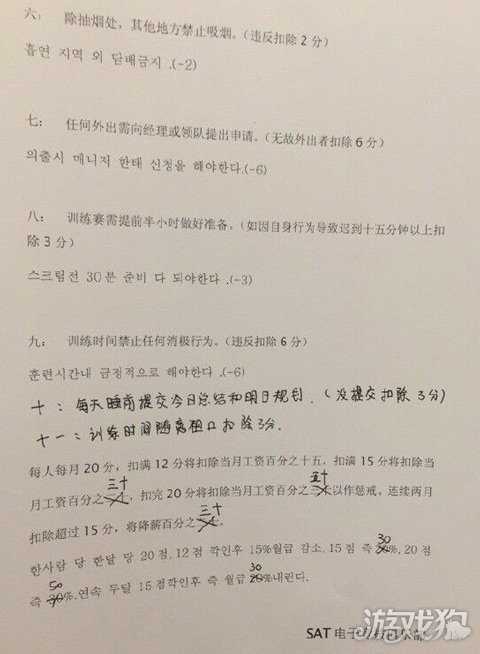 六： 除抽烟处，其他地方禁止吸烟。（违反扣除 2 分）
흡연 지역 외 담배금지 .(-2)
七： 任何外出需向经理或领队提出申请。（无故外出者扣除 6 分）
의출시 매니저 한태 신청을 해야한다.(-6)
八： 训练赛需提前半小时做好准备。（如因自身行为导致迟到十五分钟以上扣
除 3 分）
스크림전 30 분 준비 다 되야한다 .(-3)
九： 训练时间禁止任何消极行为。（违反扣除 6 分）
훈련시간내 긍정적으로 해야한다 .(-6)
十：每天睡前提交今日总结和明日规划.（没提交扣除 3分）
十一：训练时间随离组口扣除3分.
每人每月 20 分，扣满 12 分将扣除当月工资百分之十五，扣满 15 分将扣除当
三十 五十
月工资百分之 ，扣完 20 分将扣除当月工资百分之三 以作惩戒。连续两月
三十
扣除超过 15 分，将降薪百分之 。
한사람 당 한달 당 20 점,12 점 깍인후 15%월급 감소, 15 점 즉 30 %,20 점
즉 50 30%.연속 두달 15 점깍인후 즉 월급 30 20%내린다.
SAT 电子竞技俱乐部
游戏狗